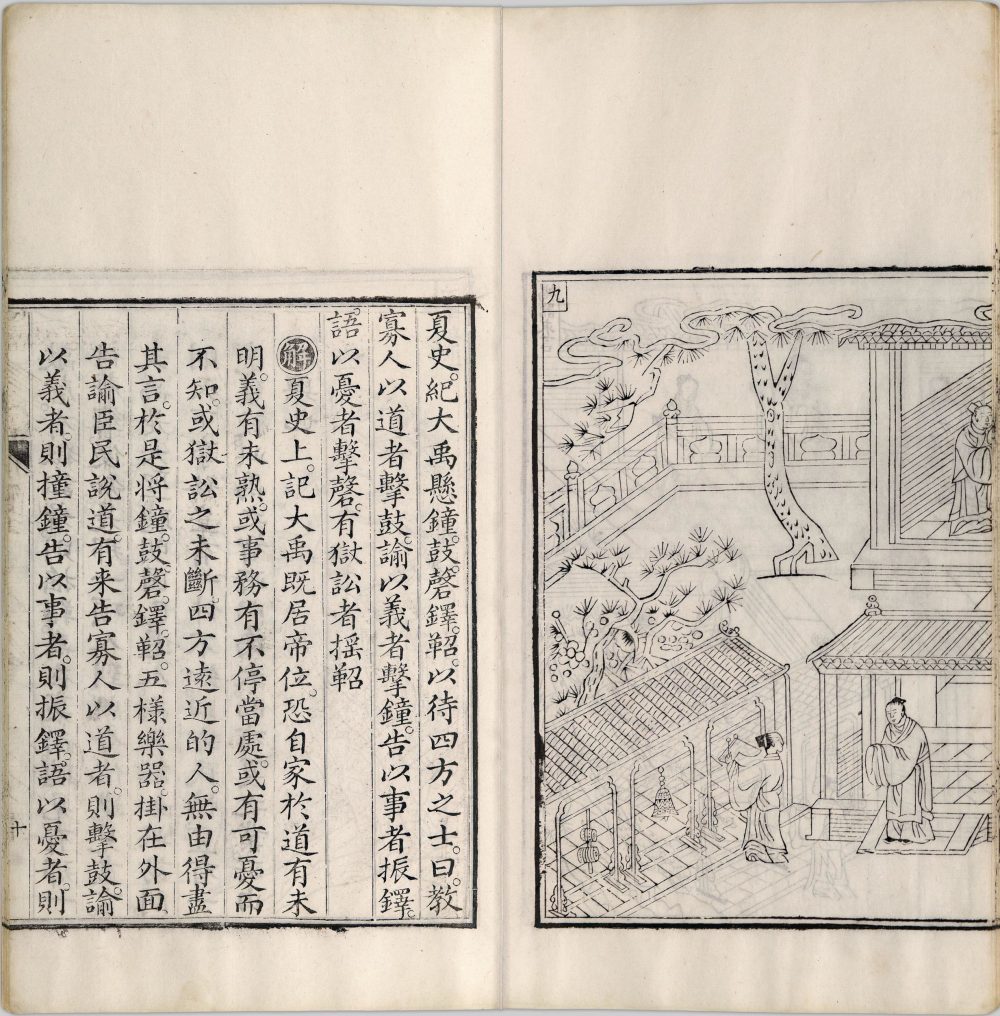 九
夏史。紀大禹懸鐘。鼓。磬。鐸。鞀。以待四方之士。曰。教
寡人以道者擊鼓。諭以義者擊鐘。告以事者振鐸。
語以憂者擊磬。有獄訟者揺鞀
解夏史上。記大禹既居帝位。恐自家於道有未
明。義有未熟。或事務有不停當處。或有可憂而
不知。或獄訟之未斷。四方遠近的人。無由得盡
其言。於是将鐘。鼓。磬。鐸。鞀。五様樂器掛在外面。
告諭臣民說道。有来告寡人以道者。則擊鼓。諭
以義者。則撞鐘。告以事者。則振鐸。語以憂者。則
十